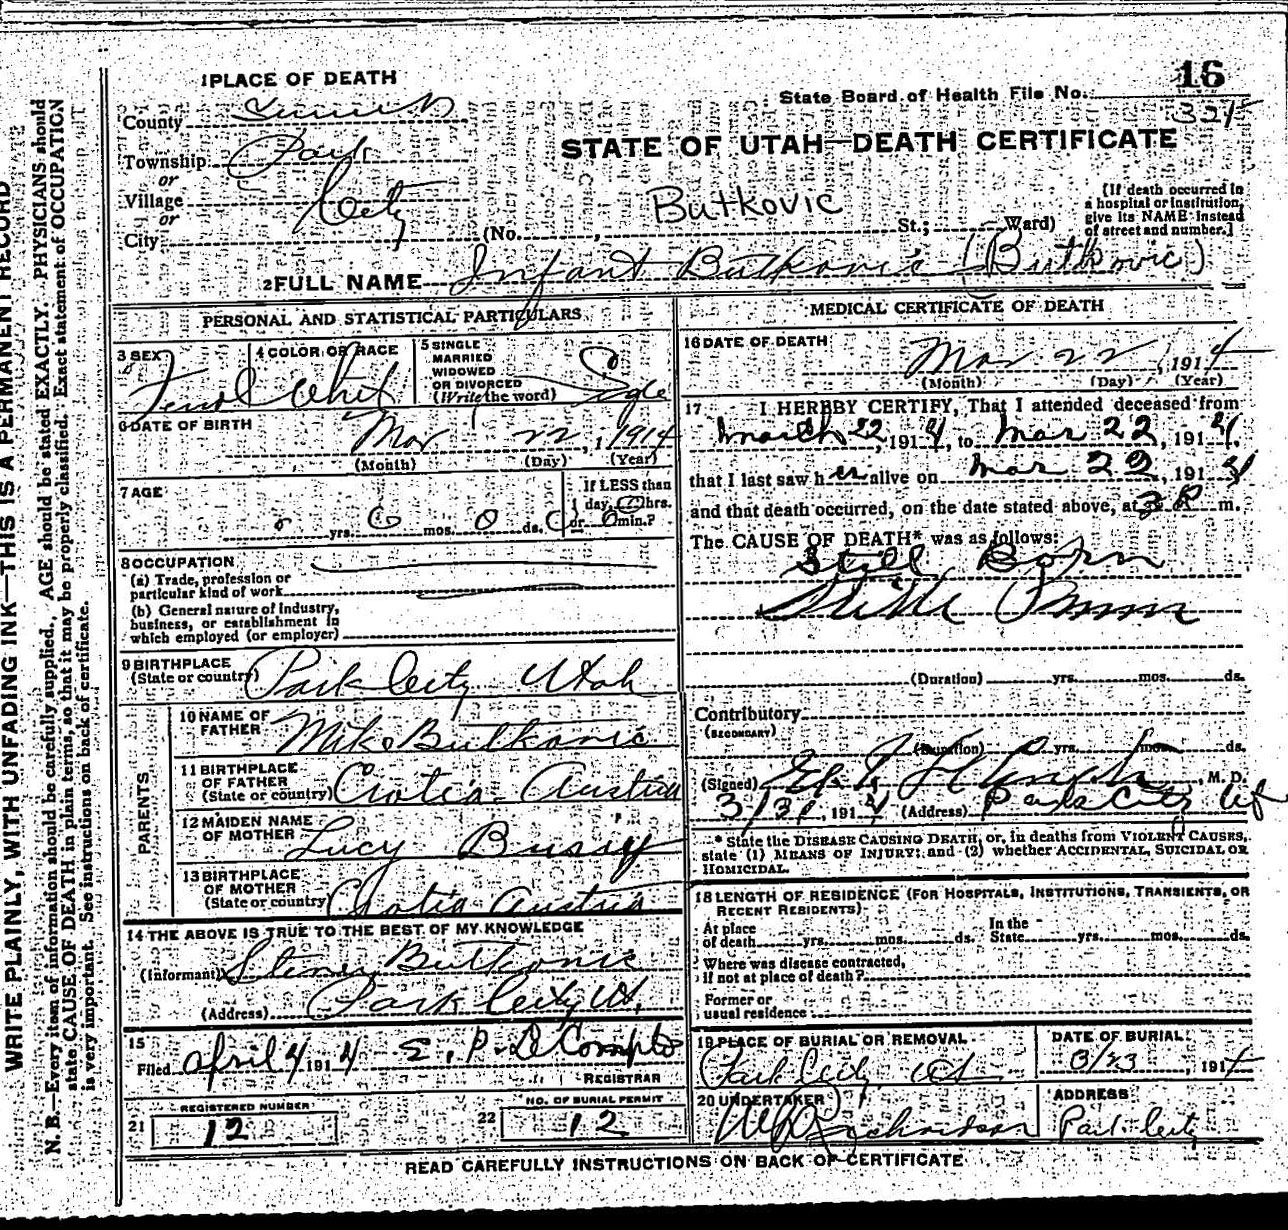 WRITE PLAINLY, WITH UNFADING INK—THIS IS A PERMANENT RECORD
N. B.—Every item of information should be carefully supplied. AGE should be stated EXACTLY. PHYSICIANS should
state CAUSE OF DEATH in plain terms, so that it may be properly classified. Exact statement of OCCUPATION
is very important. See instructions on back of certificate.
1 PLACE OF DEATH
16
State Board of Health File No.
County Summit
STATE OF UTAH—DEATH CERTIFICATE
Township Park
or
Village City
or
City
(No. , St.; Ward)
Butkovic
(If death occurred in
a hospital or institution,
give its NAME instead
of street and number.]
2 FULL NAME Infant Butkovic (Butkovic)
PERSONAL AND STATISTICAL PARTICULARS
3 SEX
4 COLOR OR RACE
5 SINGLE
MARRIED
WIDOWED
OR DIVORCED
(Write the word)
6 DATE OF BIRTH
Mar 22, 1914
(Month) (Day) (Year)
7 AGE
If LESS than
1 day, 0 hrs.
0 yrs. 0 mos. 0 ds. or 0 min.?
8 OCCUPATION
(a) Trade, profession or
particular kind of work
(b) General nature of industry,
business, or establishment in
which employed (or employer)
9 BIRTHPLACE
(State or country) Park City Utah
PARENTS
10 NAME OF
FATHER Mike Butkovic
11 BIRTHPLACE
OF FATHER
(State or country) Crotia Austria
12 MAIDEN NAME
OF MOTHER Lucy
13 BIRTHPLACE
OF MOTHER
(State or country) Crotia Austria
14 THE ABOVE IS TRUE TO THE BEST OF MY KNOWLEDGE
(Informant) Butkovic
(Address) Park City Ut.
15
Filed April 4 1914 E. P. Le Compte
REGISTRAR
REGISTERED NUMBER
21 12
NO. OF BURIAL PERMIT
22 12
MEDICAL CERTIFICATE OF DEATH
16 DATE OF DEATH
Mar 22, 1914
(Month) (Day) (Year)
17 I HEREBY CERTIFY, That I attended deceased from
March 22, 1914, to Mar 22, 1914,
that I last saw her alive on Mar 22, 1914
and that death occurred, on the date stated above, at 3 P m.
The CAUSE OF DEATH* was as follows:
Still Born
(Duration) yrs. mos. ds.
Contributory
(SECONDARY)
(Duration) yrs. mos. ds.
(Signed) , M. D.
3/31, 1914 (Address) Park City Ut
* State the DISEASE CAUSING DEATH, or, in deaths from VIOLENT CAUSES,
state (1) MEANS OF INJURY; and (2) whether ACCIDENTAL, SUICIDAL OR
HOMICIDAL.
18 LENGTH OF RESIDENCE (FOR HOSPITALS, INSTITUTIONS, TRANSIENTS, OR
RECENT RESIDENTS)
At place
of death yrs. mos. ds.
In the
State yrs. mos. ds.
Where was disease contracted,
if not at place of death?
Former or
usual residence
19 PLACE OF BURIAL OR REMOVAL
Park City Ut
DATE OF BURIAL
3/23, 1914
20 UNDERTAKER
Richardson
ADDRESS
Park City
READ CAREFULLY INSTRUCTIONS ON BACK OF CERTIFICATE